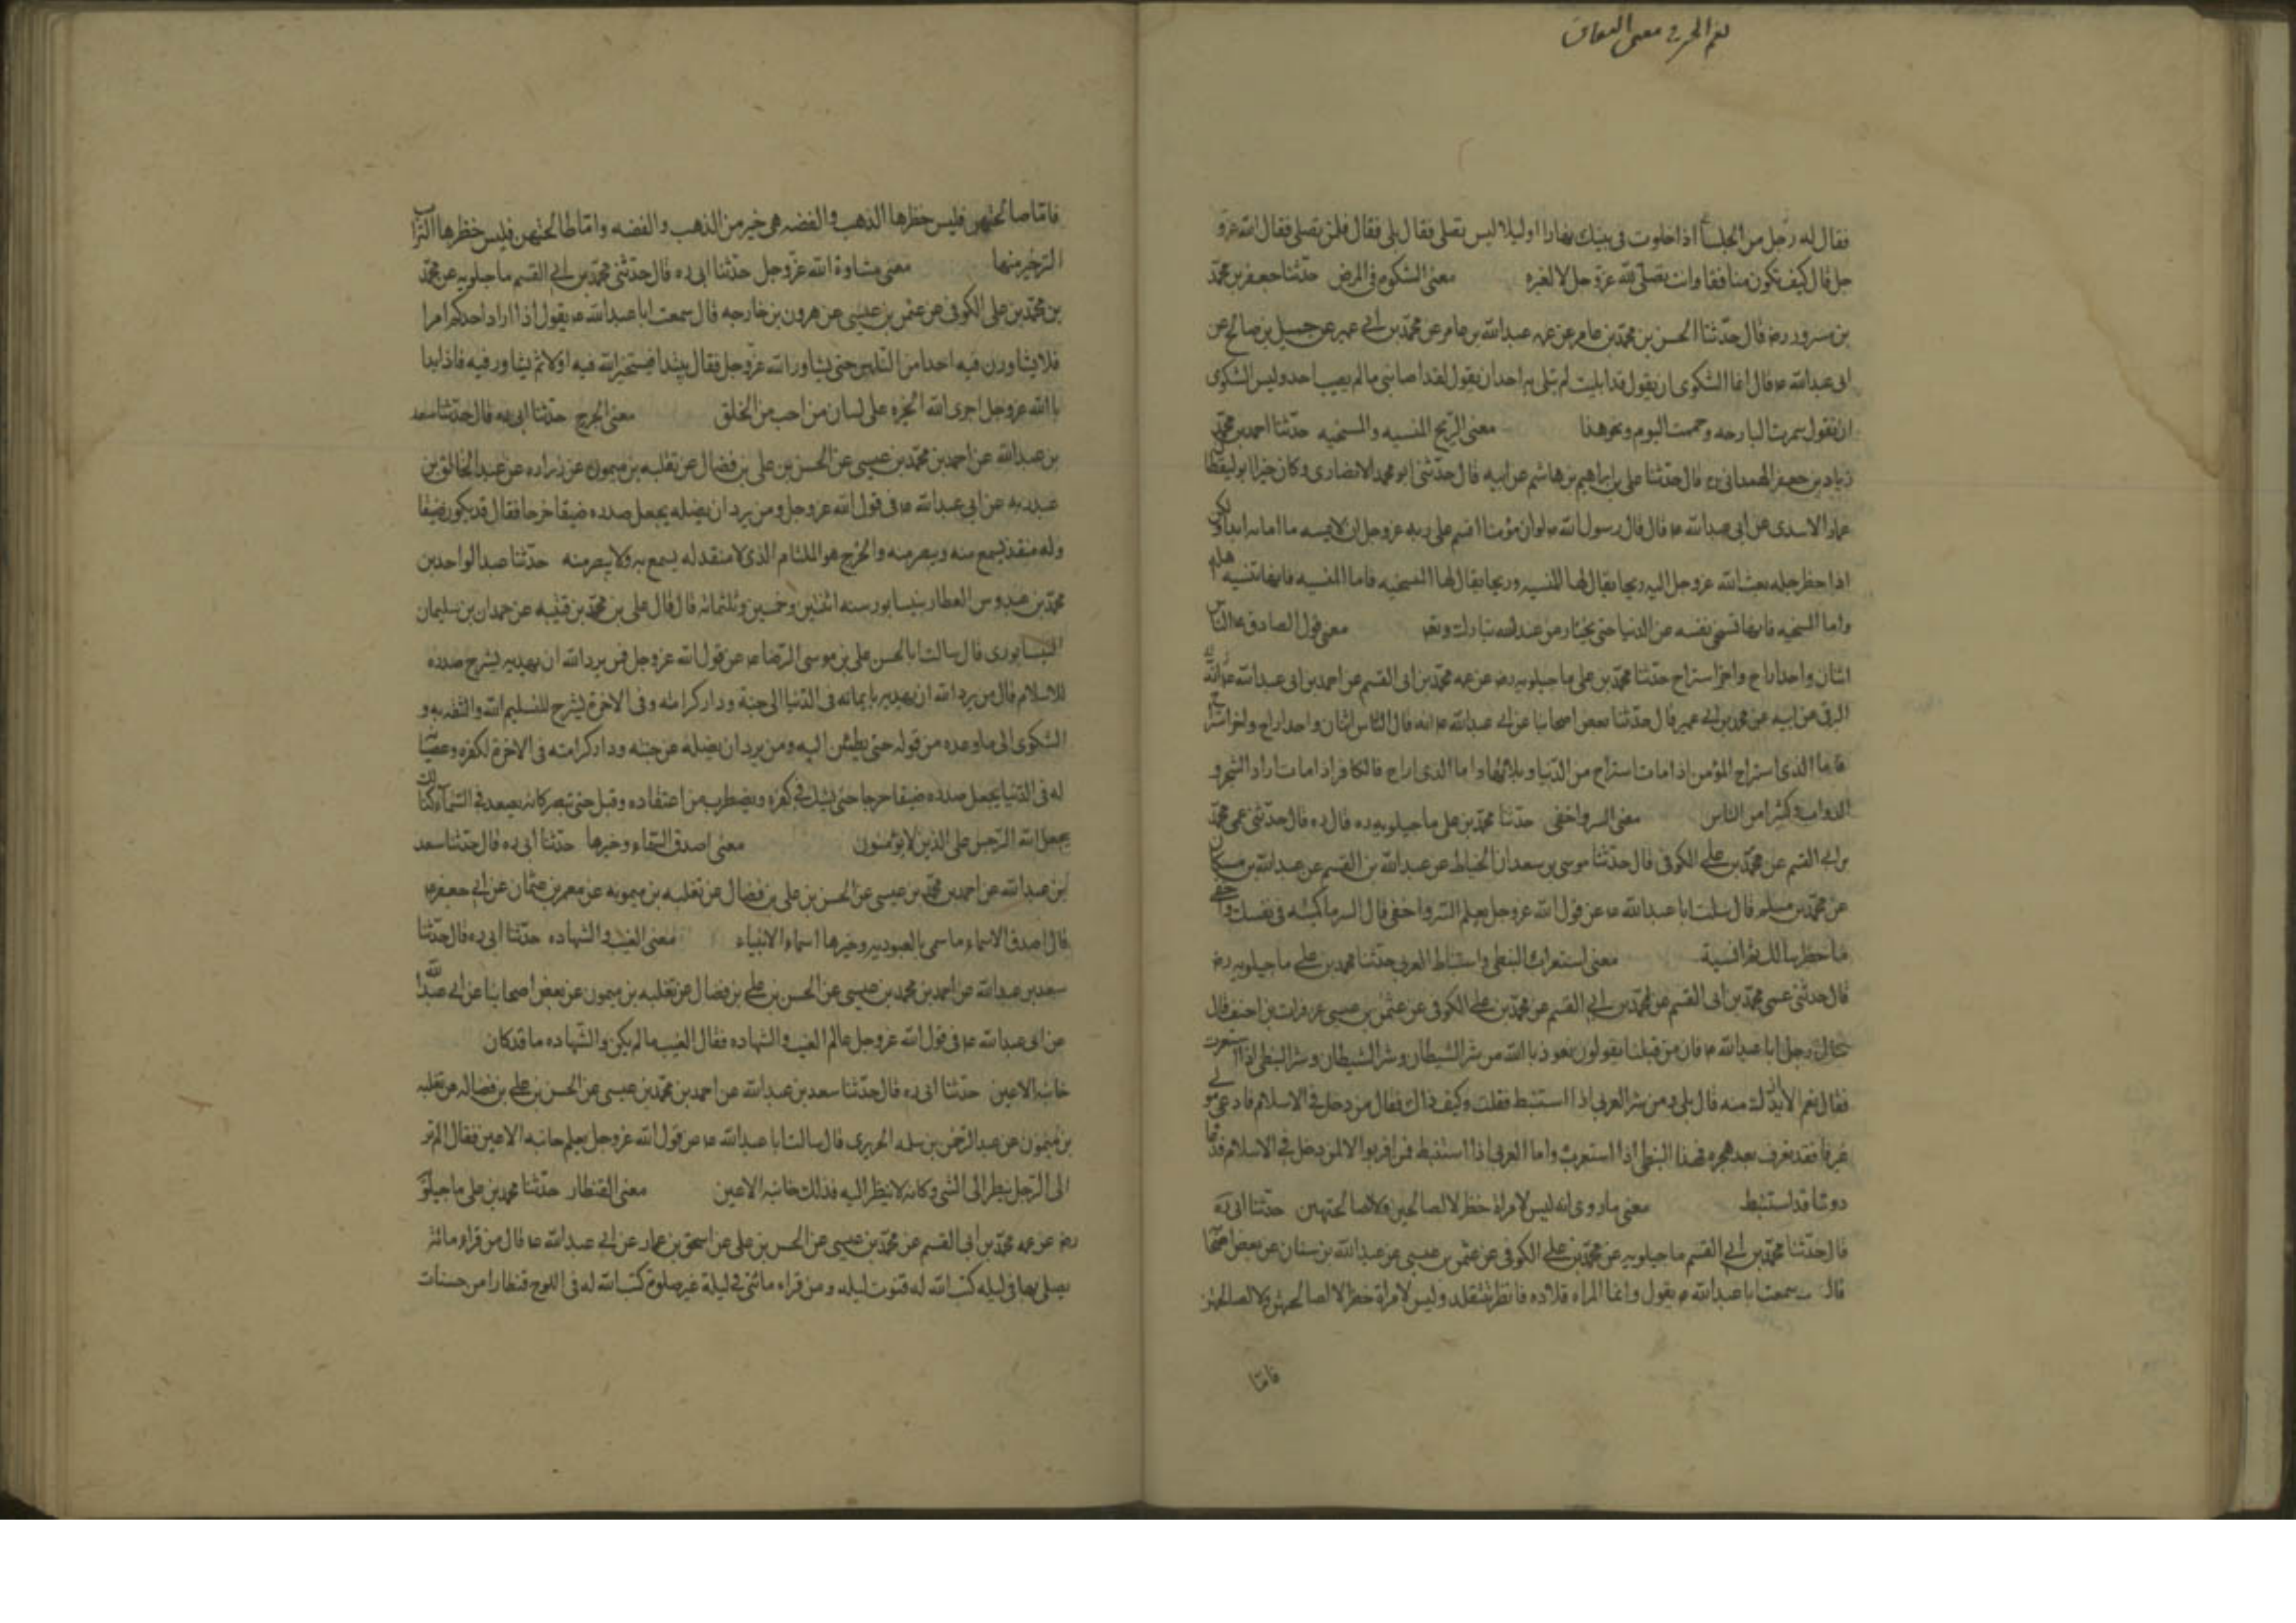 معنى النفاق
فقال له رجل من الجلساء اذا خلوت فى بيتك نهارا او ليلا اليس تصلى فقال بلى فقال فلمن تصلى فقال لله عزو
جل قال كيف تكون منافقا وانت تصلى لله عز وجل لا لغيره معنى الشكوى فى المرض حدثنا جعفر بن محمد
بن مسرور رض قال حدثنا الحسن بن محمد بن عامر عن عمه عبدالله بن عامر عن محمد بن ابى عمير عن جميل بن صالح عن
ابى عبدالله ع قال انما الشكوى ان يقول قد ابليت لم يبتلى به احد ان يقول لقد اصابنى ما لم يصيب احد وليس الشكوى
ان تقول سهرت البارحه وحممت اليوم ونحو هذا معنى الريح المنسيه والمسخيه حدثنا احمد بن محمد
زياد بن جعفر الهمدانى ره قال حدثنا على بن ابراهيم بن هاشم عن ابيه قال حدثنى ابو محمد الانصارى وكان خيرا ابو اليقظا
عمار الاسدى عن ابى عبدالله ع قال قال رسول الله ص لو ان مؤمنا اقسم على ربه عز وجل ان لا يميته ما اماته ابدا ولكن
اذا حضر اجله بعث الله عز وجل اليه ريحا يقال لها المنسيه وريحا يقال لها المسخيه فاما المنسيه فانها تنسيه
واما المسخيه فانها تسخى نفسه عن الدنيا حتى يختار من عند الله تبارك وتعا معنى قول الصادق ع الناس
اثنان واحد اراح واخر استراح حدثنا محمد بن على ماجيلويه رض عن عمه محمد بن ابى القسم عن احمد بن ابى عبدالله
البرقى عن ابيه عن محمد بن ابى عمير قال حدثنا بعض اصحابنا عن ابى عبدالله ع انه قال الناس اثنان واحد اراح واخر استراح
فاما الذى استراح المؤمن اذا مات استراح من الدنيا وبلائها واما الذى اراح فالكافر اذا مات اراد الشجر و
الدواب وكثيرا من الناس معنى السر واخفى حدثنا محمد بن على ماجيلويه ره قال ره قال حدثنى عمى محمد
بن ابى القسم عن محمد بن على الكوفى قال حدثنا موسى بن سعدان الحناط عن عبدالله بن القسم عن عبدالله بن مسكان
عن محمد بن مسلم قال سئلت ابا عبدالله ع عن قول الله عز وجل يعلم السر واخفى قال السر ما كتمته فى نفسك واخفى
ما خطر ببالك ثم انسيته معنى استعراب النبطى واستنباط العربى حدثنا محمد بن على ماجيلويه رض
قال حدثنى عمى محمد بن ابى القسم عن محمد بن ابى القسم عن محمد بن على الكوفى عن عثمن بن عيسى عن فرات بن احنف قال
سال رجل ابا عبدالله ع فان من قبلنا يقولون نعوذ بالله من شر الشيطان وشر الشيطان وشر النبطى اذا استعرب
فقال نعم الا ازيدك منه قال بلى ومن شر العربى اذا استنبط فقلت وكيف ذاك فقال من دخل فى الاسلام فادعى مو
غيرنا فقد تعرب بعد هجره فهذا النبطى اذا استعرب واما العربى اذا استنبط فمن اقر بولا لمن دخل فى الاسلام فادعا
دوننا قد استنبط معنى ما روى انه ليس لامراة خطر لا لصالحهن ولا لصالحتهن حدثنا ابى ره
قال حدثنا محمد بن ابى القسم ماجيلويه عن محمد بن على الكوفى عن عثمن بن عيسى عن عبدالله بن سنان عن بعض اصحابنا
قال سمعت ابا عبدالله ع يقول وانما المراه قلاده فانظر ما تتقلد وليس لامراة خطر لا لصالحتهن ولا لطالحتهن
فامّا
فامّا صالحتهن فليس خطرها الذهب والفضه هى خير من الذهب والفضه وامّا طالحتهن فليس خطرها التراب
التراب خير منها معنى مشاورة الله عز وجل حدثنا ابى ره قال حدثنى محمد بن ابى القسم ماجيلويه عن محمد
بن محمد بن على الكوفى عن عثمن بن عيسى عن هرون بن خارجه قال سمعت ابا عبدالله ع يقول اذا اراد احدكم امرا
فلا يشاورن فيه احدا من الناس حتى يشاور الله عز وجل فقال يبتدا فيستخير الله فيه اولا ثم يشاور فيه فاذا بدا
بالله عز وجل اجرى الله الخيره على لسان من احب من الخلق معنى الحرج حدثنا ابى ره قال حدثنا سعد
بن عبدالله عن احمد بن محمد بن عيسى عن الحسن بن على بن فضال عن ثعلبه بن ميمون عن زراره عن عبدالخالق بن
عبدربه عن ابى عبدالله ع فى قول الله عز وجل ومن يرد ان يضله يجعل صدره ضيقا حرجا فقال قد يكون ضيقا
وله منفذ يسمع منه ويبصر منه والحرج هو الملتام الذى لا منفد له يسمع به ولا يبصر منه حدثنا عبدالواحد بن
محمد بن عبدوس العطار بنيسابور سنه اثنتين وخمسين وثلثمائه قال قال على بن محمد بن قتيبه عن حمدان بن سليمان
النيسابورى قال سالت ابا الحسن على بن موسى الرضا ع عن قول الله عز وجل فمن يرد الله ان يهديه يشرح صدره
للاسلام قال من يرد الله ان يهديه بايمانه فى الدنيا الى جنته ودار كرامته وفى الاخرة يشرح للتسليم الله والثقه به و
السكوى الى ما وعده من قوله حتى يطمئن اليه ومن يرد ان يضله عن جنته ودار كرامته فى الاخرة لكفره وعصيانه
له فى الدنيا يجعل صدره ضيقا حرجا حتى يشك فى كفره ويضطرب من اعتقاده وقبل حتى تبصر كانه يصعد فى السماء كذلك
يجعل الله الرجس على الذين لا يؤمنون معنى اصدق الاسماء وخيرها حدثنا ابى ره قال حدثنا سعد
بن عبدالله عن احمد بن محمد بن عيسى عن الحسن بن على بن فضال عن ثعلبه بن ميمونه عن معمر بن عثمان عن ابى جعفر ع
قال اصدق الاسماء ما سمى بالعبوديه وخيرها اسماء الانبياء معنى الغيب والشهاده حدثنا ابى ره قال حدثنا
سعد بن عبدالله عن احمد بن محمد بن عيسى عن الحسن بن على بن فضال عن ثعلبه بن ميمون عن بعض اصحابنا عن ابى عبدالله
عن ابى عبدالله ع فى قول الله عز وجل عالم الغيب والشهاده فقال الغيب ما لم يكن والشهاده ما قد كان
خائنة الاعين حدثنا ابى ره قال حدثنا سعد بن عبدالله عن احمد بن محمد بن عيسى عن الحسن بن على بن فضاله عن ثعلبه
بن ميمون عن عبدالرحمن بن سلمه الحريرى قال سالت ابا عبدالله ع عن قول الله عز وجل يعلم خائنه الاعين فقال الم تر
الى الرجل ينظر الى الشى وكانه لا ينظر اليه فذلك خائنه الاعين معنى القنطار حدثنا محمد بن على ماجيلويه
رض عن عمه محمد بن ابى القسم عن محمد بن عيسى عن الحسن بن على عن اسحق بن عمار عن ابى عبدالله ع قال من قراء مائه
يصلى بها فى ليله كتب الله له قنوت ليله ومن قراء مائتى فى ليلة غير صلوة كتب الله له فى اللوح قنطارا من حسنات